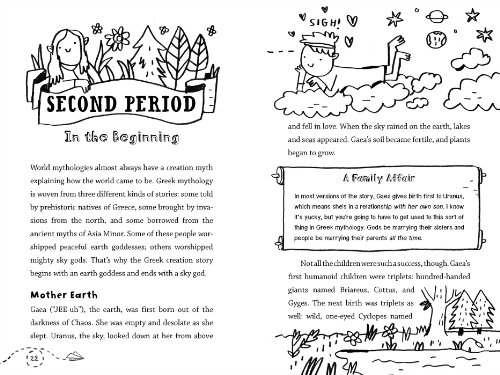 SECOND PERIOD
In the Beginning
World mythologies almost always have a creation myth
explaining how the world came to be. Greek mythology
is woven from three different kinds of stories: some told
by prehistoric natives of Greece, some brought by inva-
sions from the north, and some borrowed from the
ancient myths of Asia Minor. Some of these people wor-
shipped peaceful earth goddesses; others worshipped
mighty sky gods. That's why the Greek creation story
begins with an earth goddess and ends with a sky god.
Mother Earth
Gaea ("JEE uh"), the earth, was first born out of the
darkness of Chaos. She was empty and desolate as she
slept. Uranus, the sky, looked down at her from above
22
SIGH!
and fell in love. When the sky rained on the earth, lakes
and seas appeared. Gaea's soil became fertile, and plants
began to grow.
A Family Affair
In most versions of the story, Gaea gives birth first to Uranus,
which means she's in a relationship with her own son. I know
it's yucky, but you're going to have to get used to this sort of
thing in Greek mythology. Gods be marrying their sisters and
people be marrying their parents all the time.
Not all the children were such a success, though. Gaea's
first humanoid children were triplets: hundred-handed
giants named Briareus, Cottus, and
Gyges. The next birth was triplets as
well: wild, one-eyed Cyclopes named